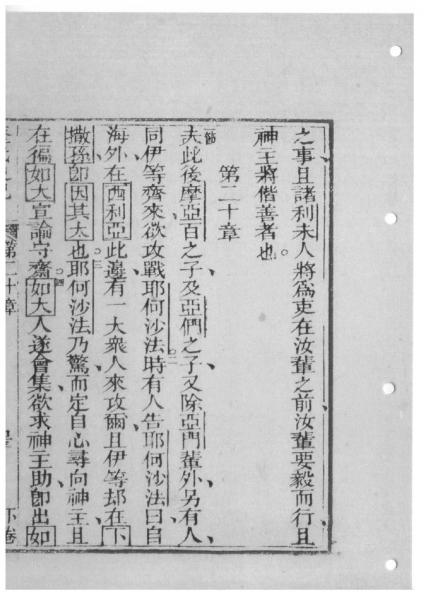 之事且諸利未人將為吏在汝輩之前汝輩要毅而行且
神王將偕善者也。
第二十章
一節夫此後摩亞百之子及亞們之子又除亞門輩外另有人
同伊等齊來欲攻戰耶何沙法。二時有人告耶何沙法曰自
海外在西利亞此邊有一大衆人來攻爾且伊等却在下
撒孫卽因其太也。三耶何沙法乃驚而定自心尋向神主且
在徧如大宣諭守齋。四如大人遂會集欲求神主助卽出如
第二十章
下卷